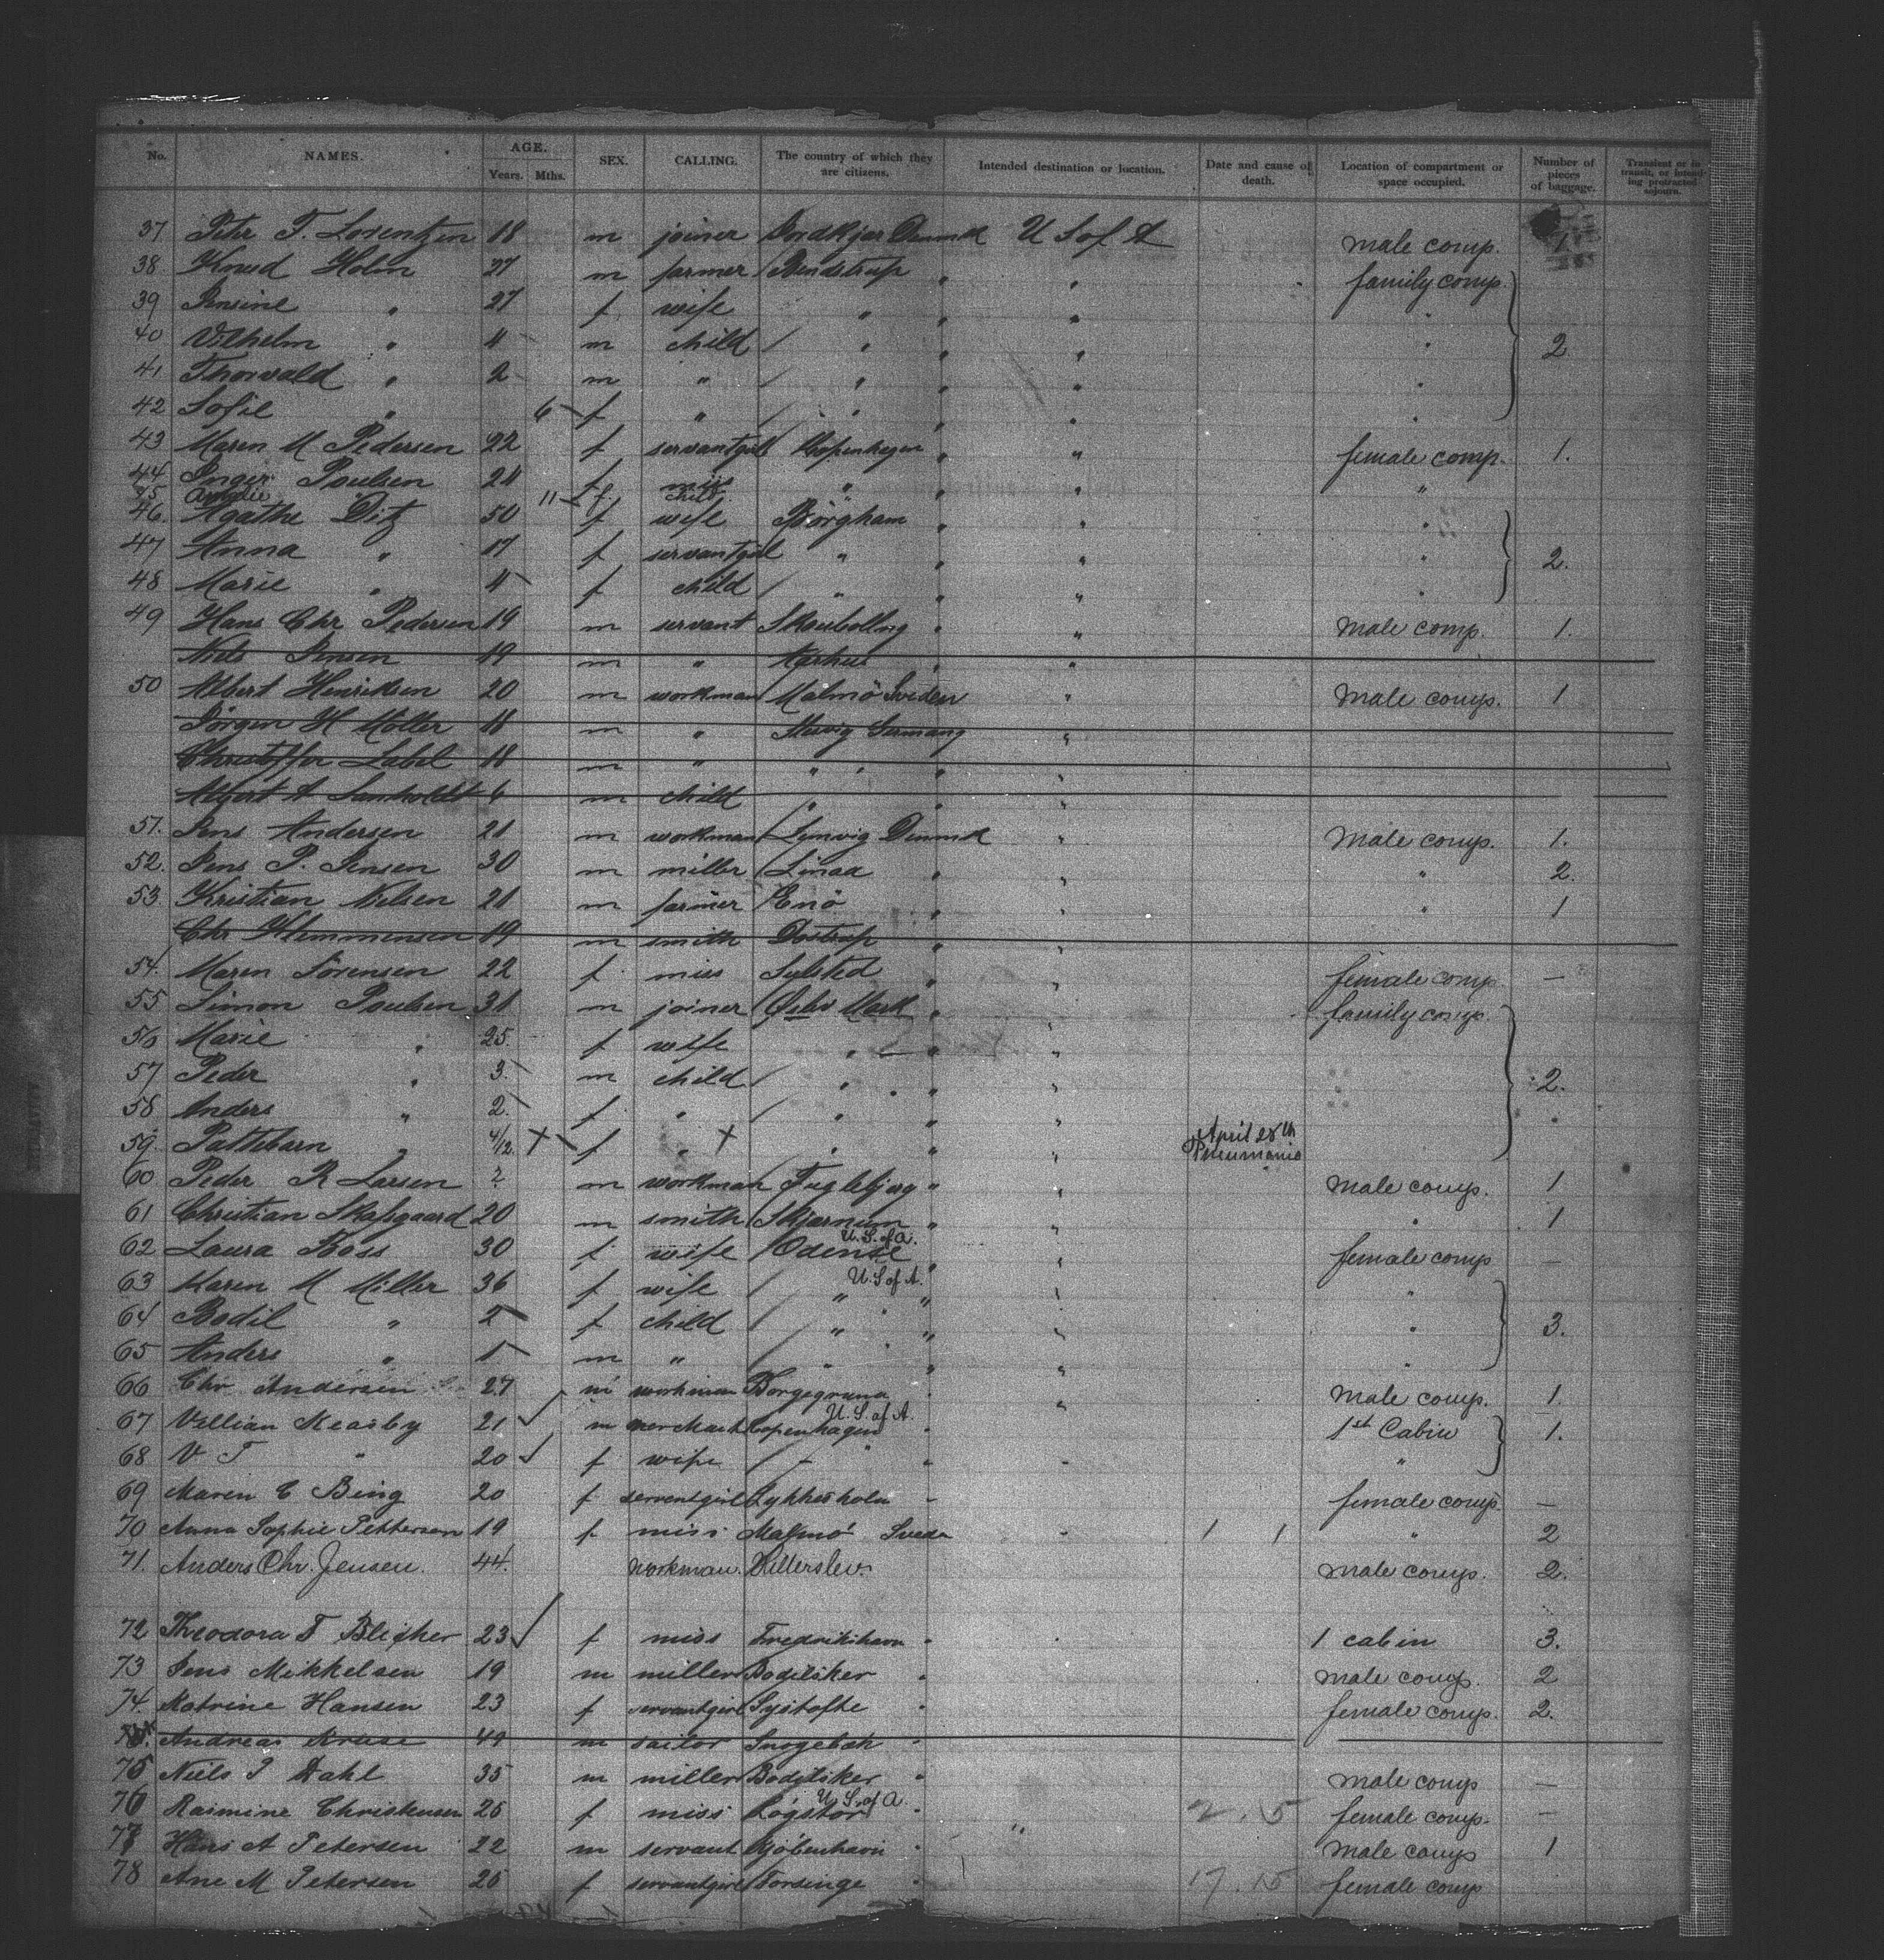 No. NAMES. AGE. Years. Mths. SEX. CALLING. The country of which they are citizens. Intended destination or location. Date and cause of death. Location of compartment or space occupied. Number of pieces of baggage. Transient or in transit, or intending protracted sojourn.
37 Peter F. Lorentzen 18 m joiner Denmk U S of A male comp. 1
38 Knud Holm 27 m farmer Bendstrup " " family comp.
39 Jensine " 27 f wife " " " "
40 Vilhelm " 4 m child / " " " " 2
41 Thorvald " 2 m " / " " " "
42 Sofie " 6 f " / " " " "
43 Maren M Pedersen 22 f servantgirl Kopenhagen " " female comp. 1.
44 Inger Poulsen 24 f miss " " " "
45 Amalie 11 f child "
46. Agathe Ditz 50 f wife Börgham " " "
47 Anna " 17 f servantgirl " " " " 2.
48 Marie " 4 f child / " " " "
49 Hans Chr Pedersen 19 m servant Skoubolling " " male comp. 1.
Niels Jensen 19 m " Aarhus " "
50 Albert Henriksen 20 m workman Malmö Sveden " male comp. 1
Jörgen H Möller 18 m " Germany "
Christoffer Label 18 m " " " "
A 6 m child " " "
51. Jens Andersen 21 m workman Lemvig Denmk " male comp. 1.
52. Jens P. Jensen 30 m miller Linaa " " " 2.
53 Kristian Nielsen 21 m farmer Enö " " " 1
Chr Klemmensen 19 m smith Dostrup " "
54. Maren Sörensen 22 f miss Sylsted " " female comp —
55 Simon Poulsen 31 m joiner Mark " family comp.
56 Marie " 25. f wife " — " "
57 Peder " 3. m child / " " " 2.
58 Anders " 2. f " / " " "
59. Pattebarn " 4/12 X f " X " " " April 28th Pneumonia
60 Peder R Larsen ? m workman Fuglebjerg " male comp. 1
61 Christian Skafsgaard 20 m smith Skjernum " " 1
62 Laura Boss 30 f wife Odense U.S. of A. " " female comp —
63 Maren M Miller 36 f wife / " U.S of A. " " "
64 Bodil " 2 f child / " " " " 3.
65 Anders " 1 m " / " " " "
66 Chr Andersen 27 m workman " " Male comp. 1.
67 Villian Keasby 21 m merchant Copenhagen U.S. of A. " 1st Cabin 1.
68 V T " 20 f wife / — " " "
69 Maren C Bing 20 f servantgirl Lykkesholm " female comp. —
70 Anna Sophie Pettersen 19 f miss Malmö Sveden " 1 1 " 2
71. Anders Chr. Jensen. 44. workman. Hillerslev. male comp. 2.
72 Theodora F Blicher 23 f miss Fredrikshavn " " 1 cabin 3.
73 Jens Mikkelsen 19 m miller Bodilsker " male comp. 2
74. Katrine Hansen 23 f servantgirl Systofte " female comp. 2.
Andreas Kruse 49 m sailor Snogebæk "
75 Niels P Dahl 35 m miller Bodilsker " male comp —
76 Rasmine Christensen 25 f miss Lögstör U.S. of A. " 2. 15 female comp. —
77 Hans A Petersen 22 m servant Kjöbenhavn " " male comp 1
78 Ane M Petersen 25 f servantgirl Torsinge " 17. 15 female comp